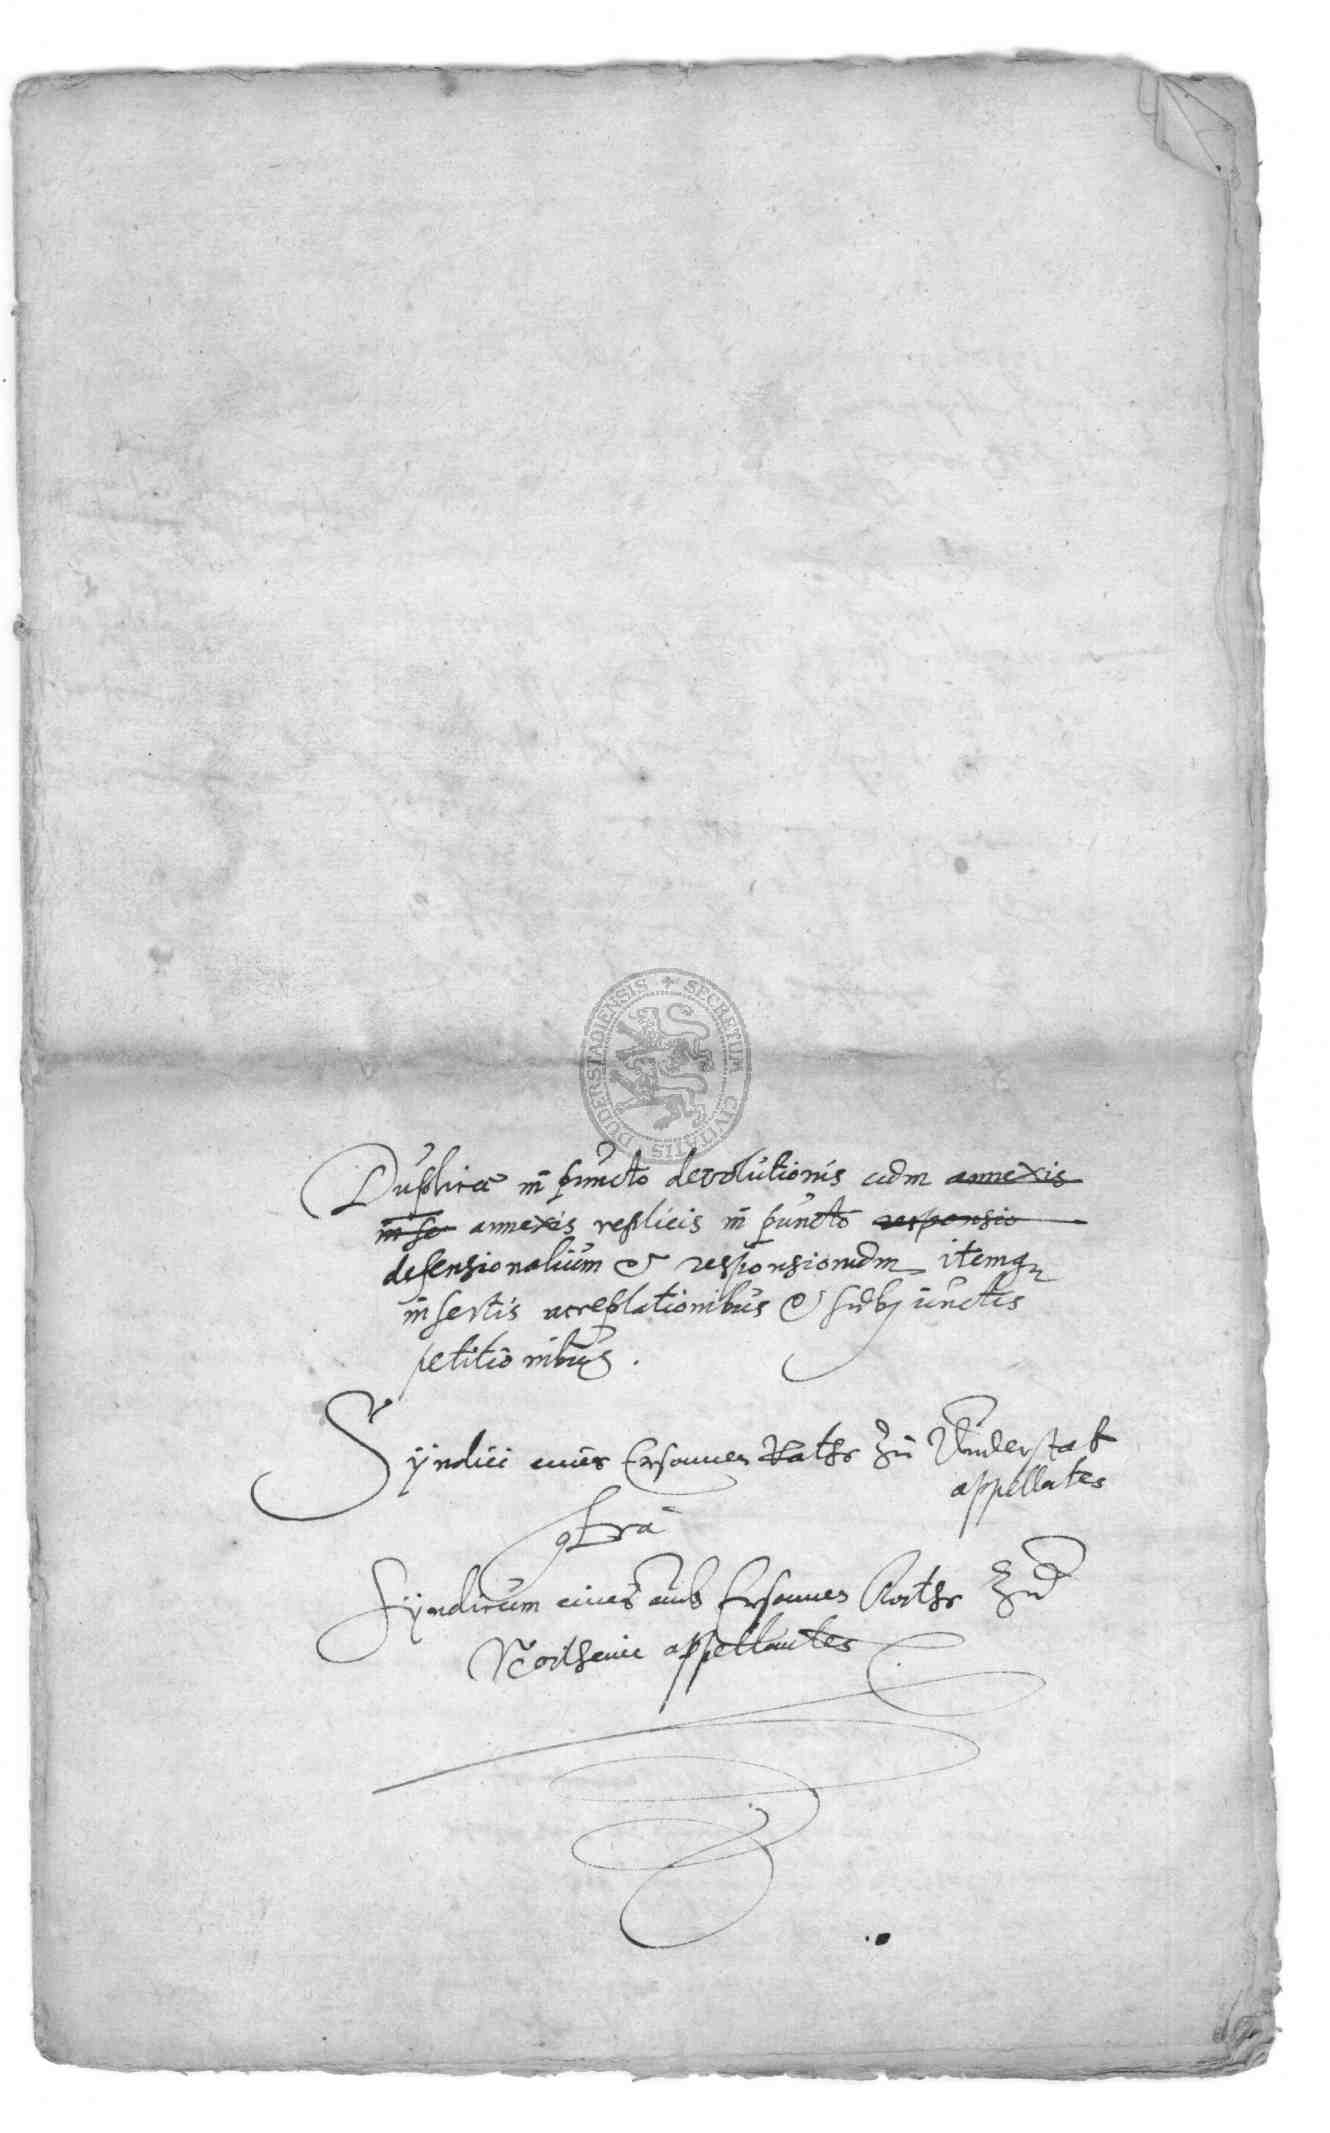 SECRETUM CIVITATIS DUDERSTADIENSIS
Duplicæ in puncto devolutionis cum annexis
in se annexis replicis in puncto responsio
defensionalium et responsionum itemq
insertis acceptationibus et subjunctis
petitionibus.
Syndici eines Ersamen Raths zu Duderstat
appellates
contra
Syndicum eines Ersamen Raths zu
Northeim appellantes